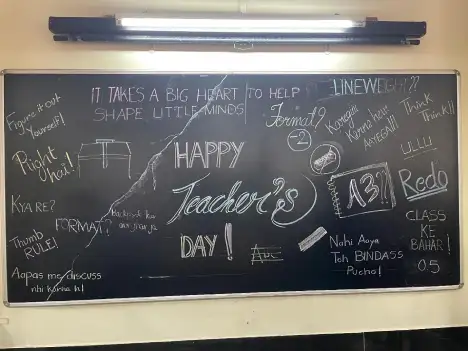 IT TAKES A BIG HEART TO HELP
SHAPE LITTLE MINDS
LINEWEIGHT??
Figure it out
Yourself!
Format?
-2
Karega
Karna hai
AAYEGA!!
Think
Think!!
Right
hai!
HAPPY
Teacher's
DAY!
ULLU
A3??
Redo
KYA RE?
FORMAT?
Thumb
RULE!
CLASS
KE
BAHAR!
05
Nahi Aaya
Toh BINDASS
Pucho!
Aapas me discuss
nhi karna h!